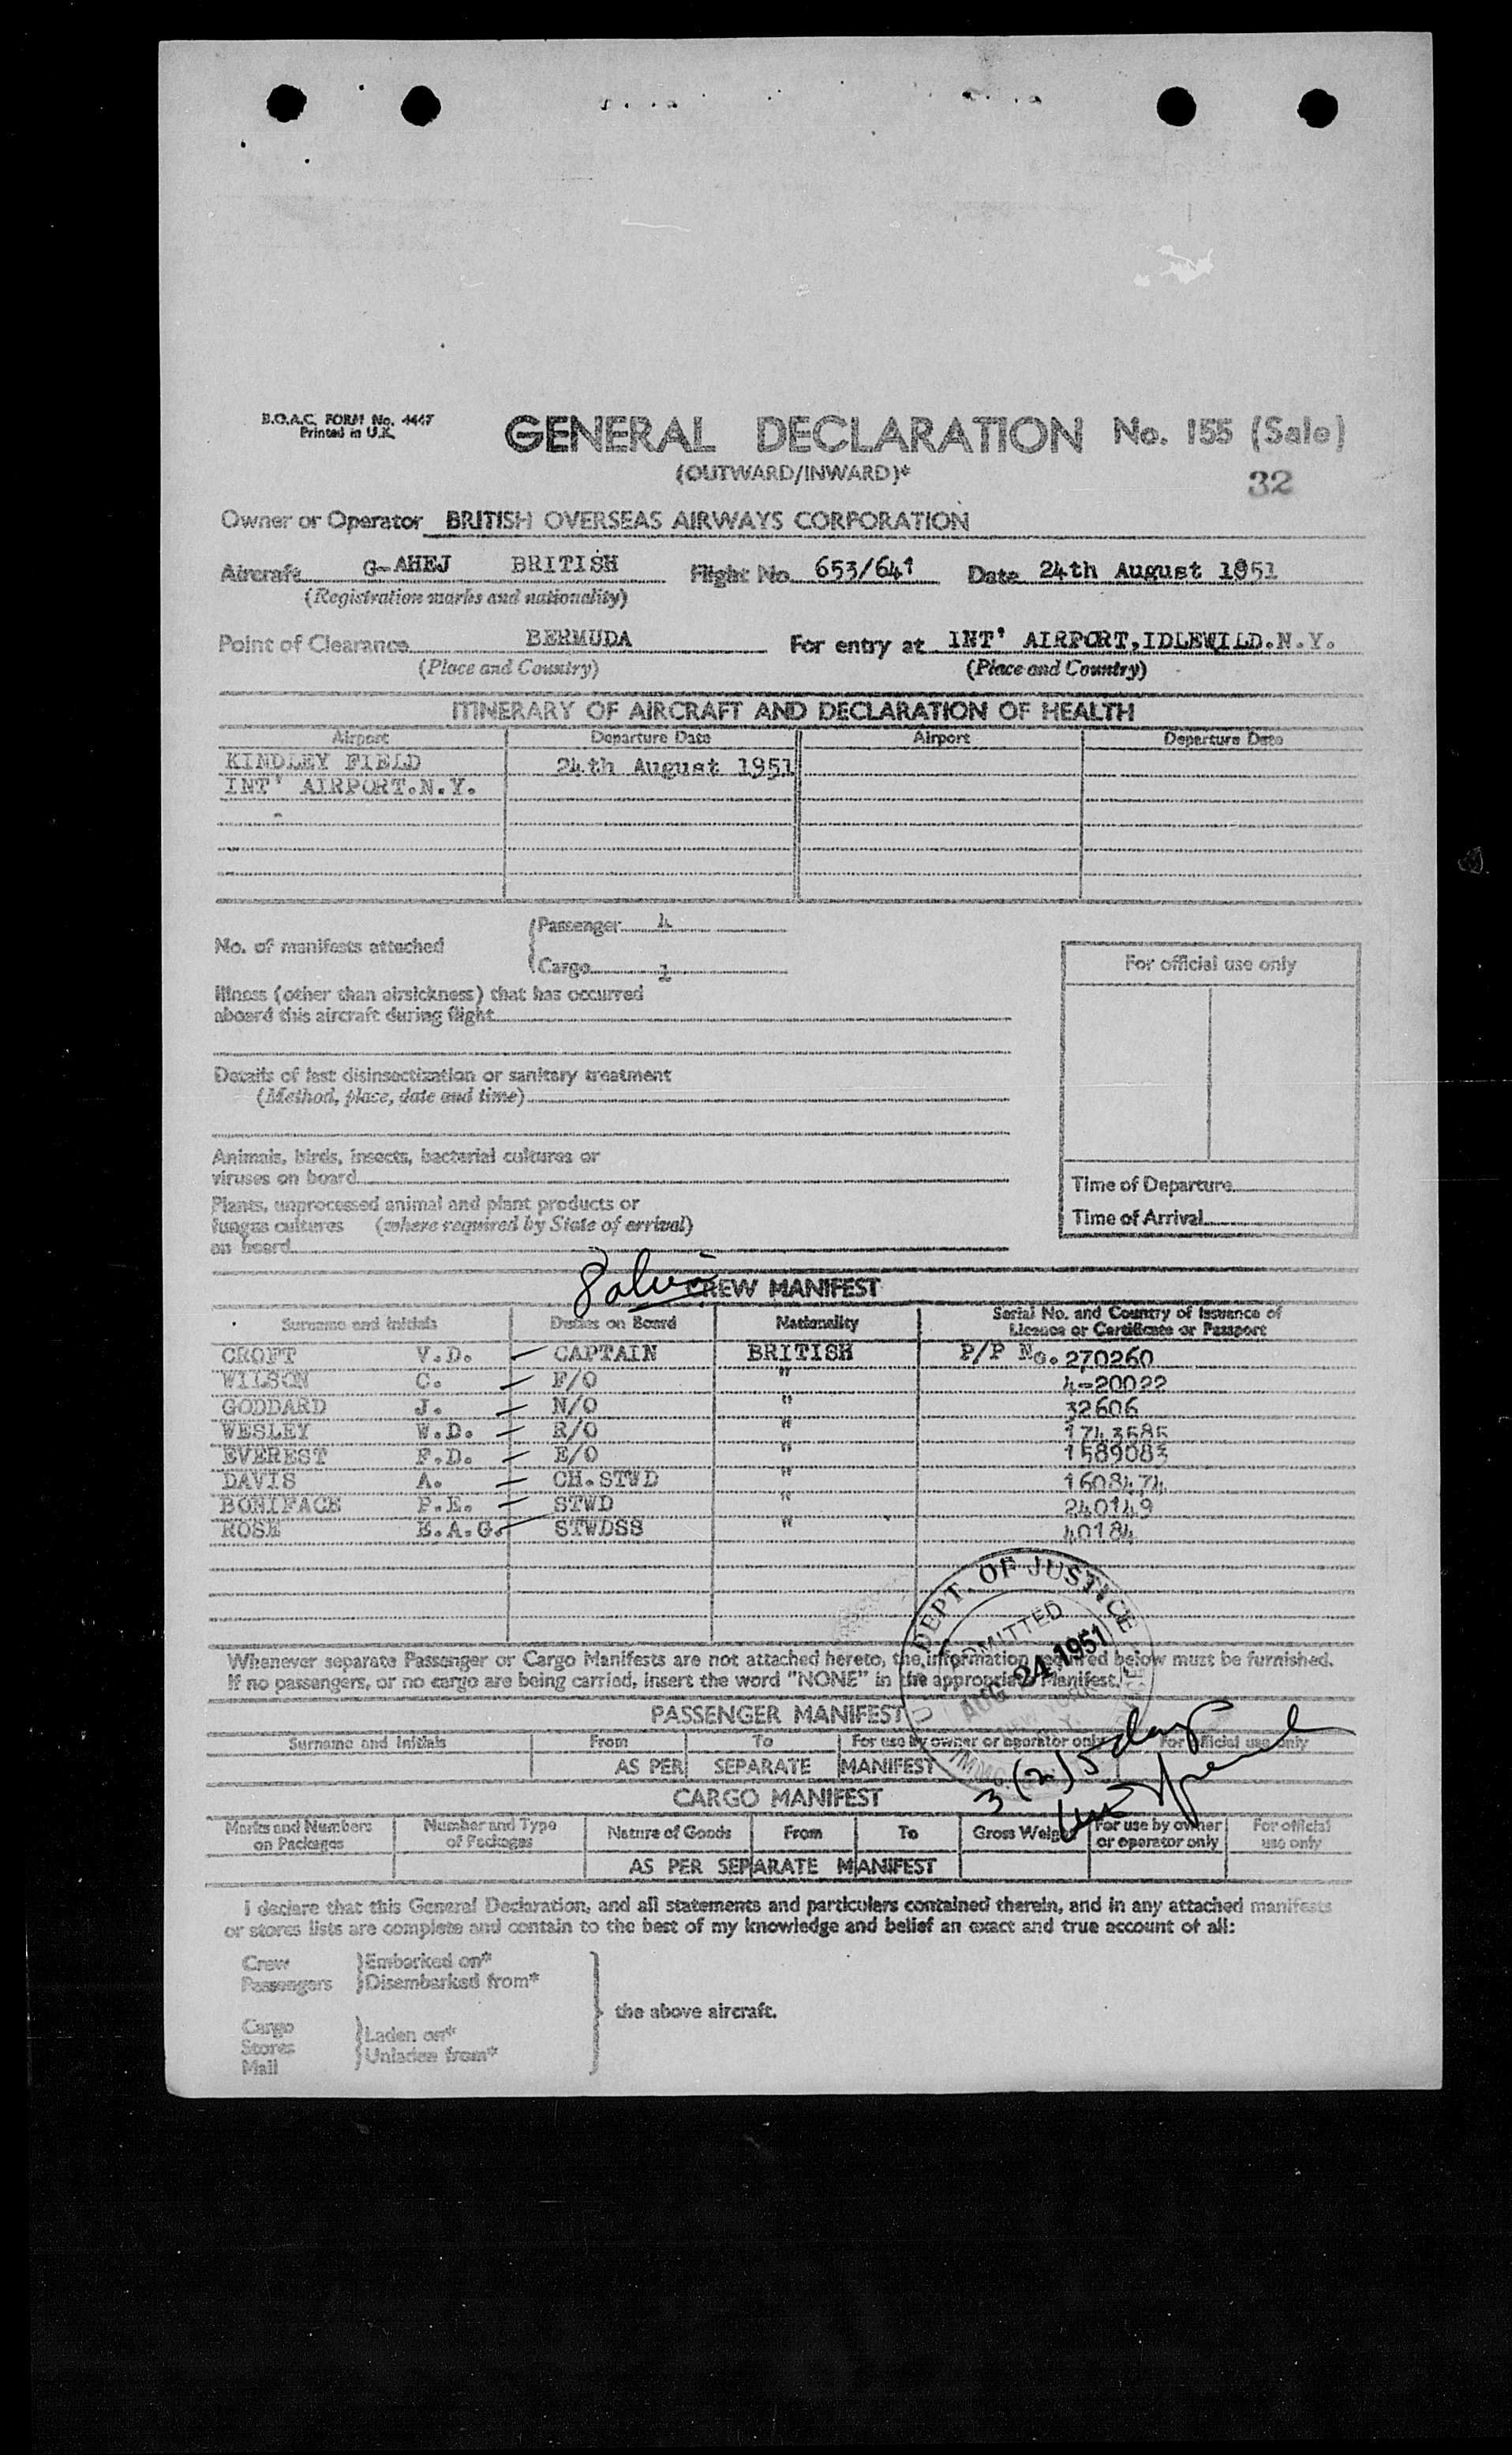 B.O.A.C. FORM No. 4447
Printed in U.K.
GENERAL DECLARATION No. 155 (Sale)
(OUTWARD/INWARD)*
32
Owner or Operator BRITISH OVERSEAS AIRWAYS CORPORATION
Aircraft G-AHEJ BRITISH Flight No. 653/641 Date 24th August 1951
(Registration marks and nationality)
Point of Clearance BERMUDA For entry at INT' AIRPORT,IDLEWILD.N.Y.
(Place and Country) (Place and Country)
ITINERARY OF AIRCRAFT AND DECLARATION OF HEALTH
Airport Departure Date Airport Departure Date
KINDLEY FIELD 24th August 1951
INT' AIRPORT.N.Y.
No. of manifests attached
Passenger 4
Cargo
For official use only
Illness (other than airsickness) that has occurred
aboard this aircraft during flight
Details of last disinsectization or sanitary treatment
(Method, place, date and time)
Animals, birds, insects, bacterial cultures or
viruses on board
Plants, unprocessed animal and plant products or
fungus cultures (where required by State of arrival)
on board
Time of Departure
Time of Arrival
CREW MANIFEST
Surname and Initials Duties on Board Nationality Serial No. and Country of Issuance of
Licence or Certificate or Passport
CROFT V.D. CAPTAIN BRITISH P/P No. 270260
WILSON C. F/O " 4-20022
GODDARD J. N/O " 32606
WESLEY W.D. R/O " 1743585
EVEREST F.D. E/O " 1589083
DAVIS A. CH.STWD " 1608474
BONIFACE P.E. STWD " 240149
ROSE E.A.G. STWDSS " 40184
DEPT. OF JUSTICE
ADMITTED
AUG 24 1951
NEW YORK
N.Y.
Whenever separate Passenger or Cargo Manifests are not attached hereto, the information required below must be furnished.
If no passengers, or no cargo are being carried, insert the word "NONE" in the appropriate Manifest.
PASSENGER MANIFEST
Surname and Initials From To For use by owner or operator only For official use only
AS PER SEPARATE MANIFEST
3 (2) 5 days
CARGO MANIFEST
Marks and Numbers
on Packages Number and Type
of Packages Nature of Goods From To Gross Weight For use by owner
or operator only For official
use only
AS PER SEPARATE MANIFEST
I declare that this General Declaration, and all statements and particulars contained therein, and in any attached manifests
or stores lists are complete and contain to the best of my knowledge and belief an exact and true account of all:
Crew Embarked on*
Passengers Disembarked from*
the above aircraft.
Cargo
Stores
Mail
Laden on*
Unladen from*